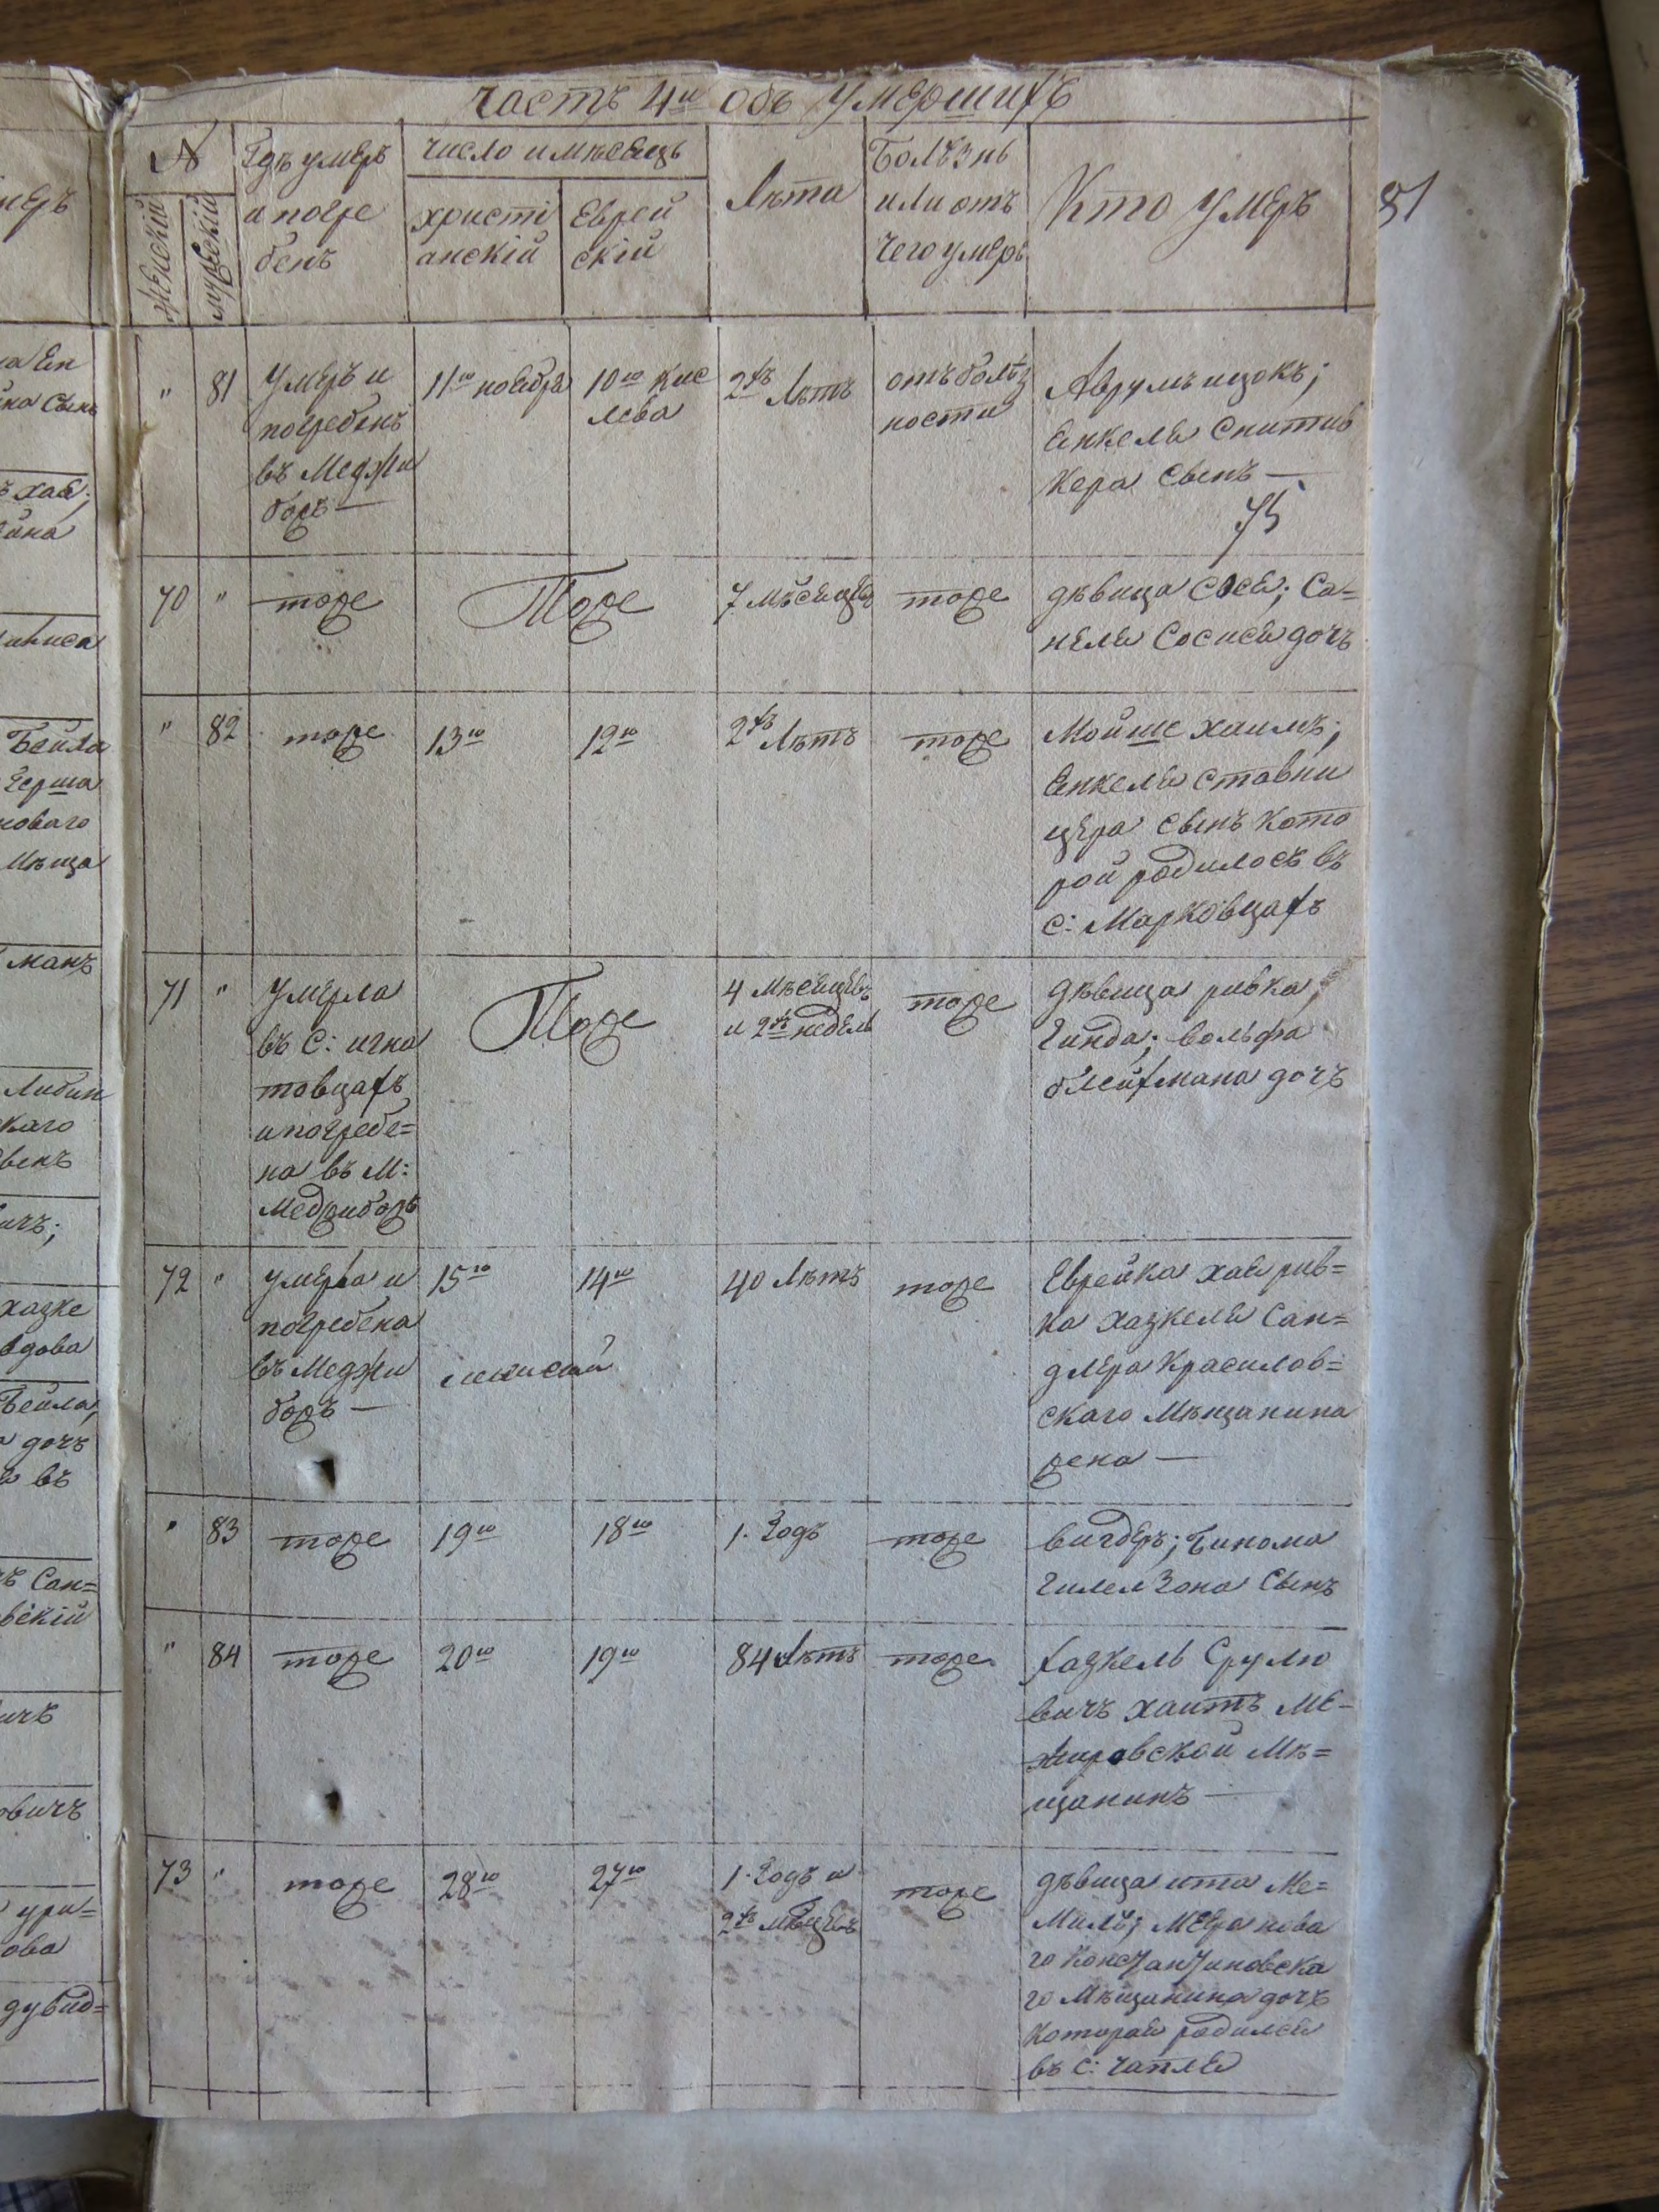 часть 4я объ умершихъ
№
женскій
мужескій
Гдѣ умеръ
и погре
бенъ
число и мѣсяцъ
христі
анскій
Еврей
скій
Лѣта
Болѣзнь
или отъ
чего умеръ
Кто умеръ
81
" 81
умеръ и
погребенъ
въ Меджи
божѣ —
11го ноября
10го кис
лева
2хъ Лѣтъ
отъ болѣз
ности
Аврумъ ицокъ;
Янкеля
кера сынъ —
75
70 "
тоже
Тоже
7 мѣсяцевъ
тоже
дѣвица Сося; Са=
неля Сосися дочь
" 82
тоже
13го
12го
2хъ Лѣтъ
тоже
Мойше хаимъ;
Янкеля ставни
цера сынъ кото
рой родилось въ
с: Марковцахъ
71 "
умерла
въ с: игна
товцахъ
и погребе=
на въ М:
Меджибожѣ
Тоже
4 мѣсяцевъ
и 2хъ недель
тоже
дѣвица ривка
Гинда; вольфа
блейхмана дочь
72 "
умерла и
погребена
въ Меджи
божѣ —
15го
14го
40 Лѣтъ
тоже
Еврейка хая рив=
ка хаскеля Сан=
длера Красилов=
скаго Мѣщанина
жена —
" 83
тоже
19го
18го
1. Годъ
тоже
вигдеръ; Бинома
Гилелзона Сынъ
" 84
тоже
20го
19го
84 Лѣтъ
тоже
хаскель Срулю
вичъ хаитъ Ме=
жировской Мѣ=
щанинъ —
73 "
тоже
28го
27го
1. Годъ и
2хъ мѣсяцевъ
тоже
дѣвица ита Ме=
го константиновска
го Мѣщанина дочь
которая родился
въ с: чапля